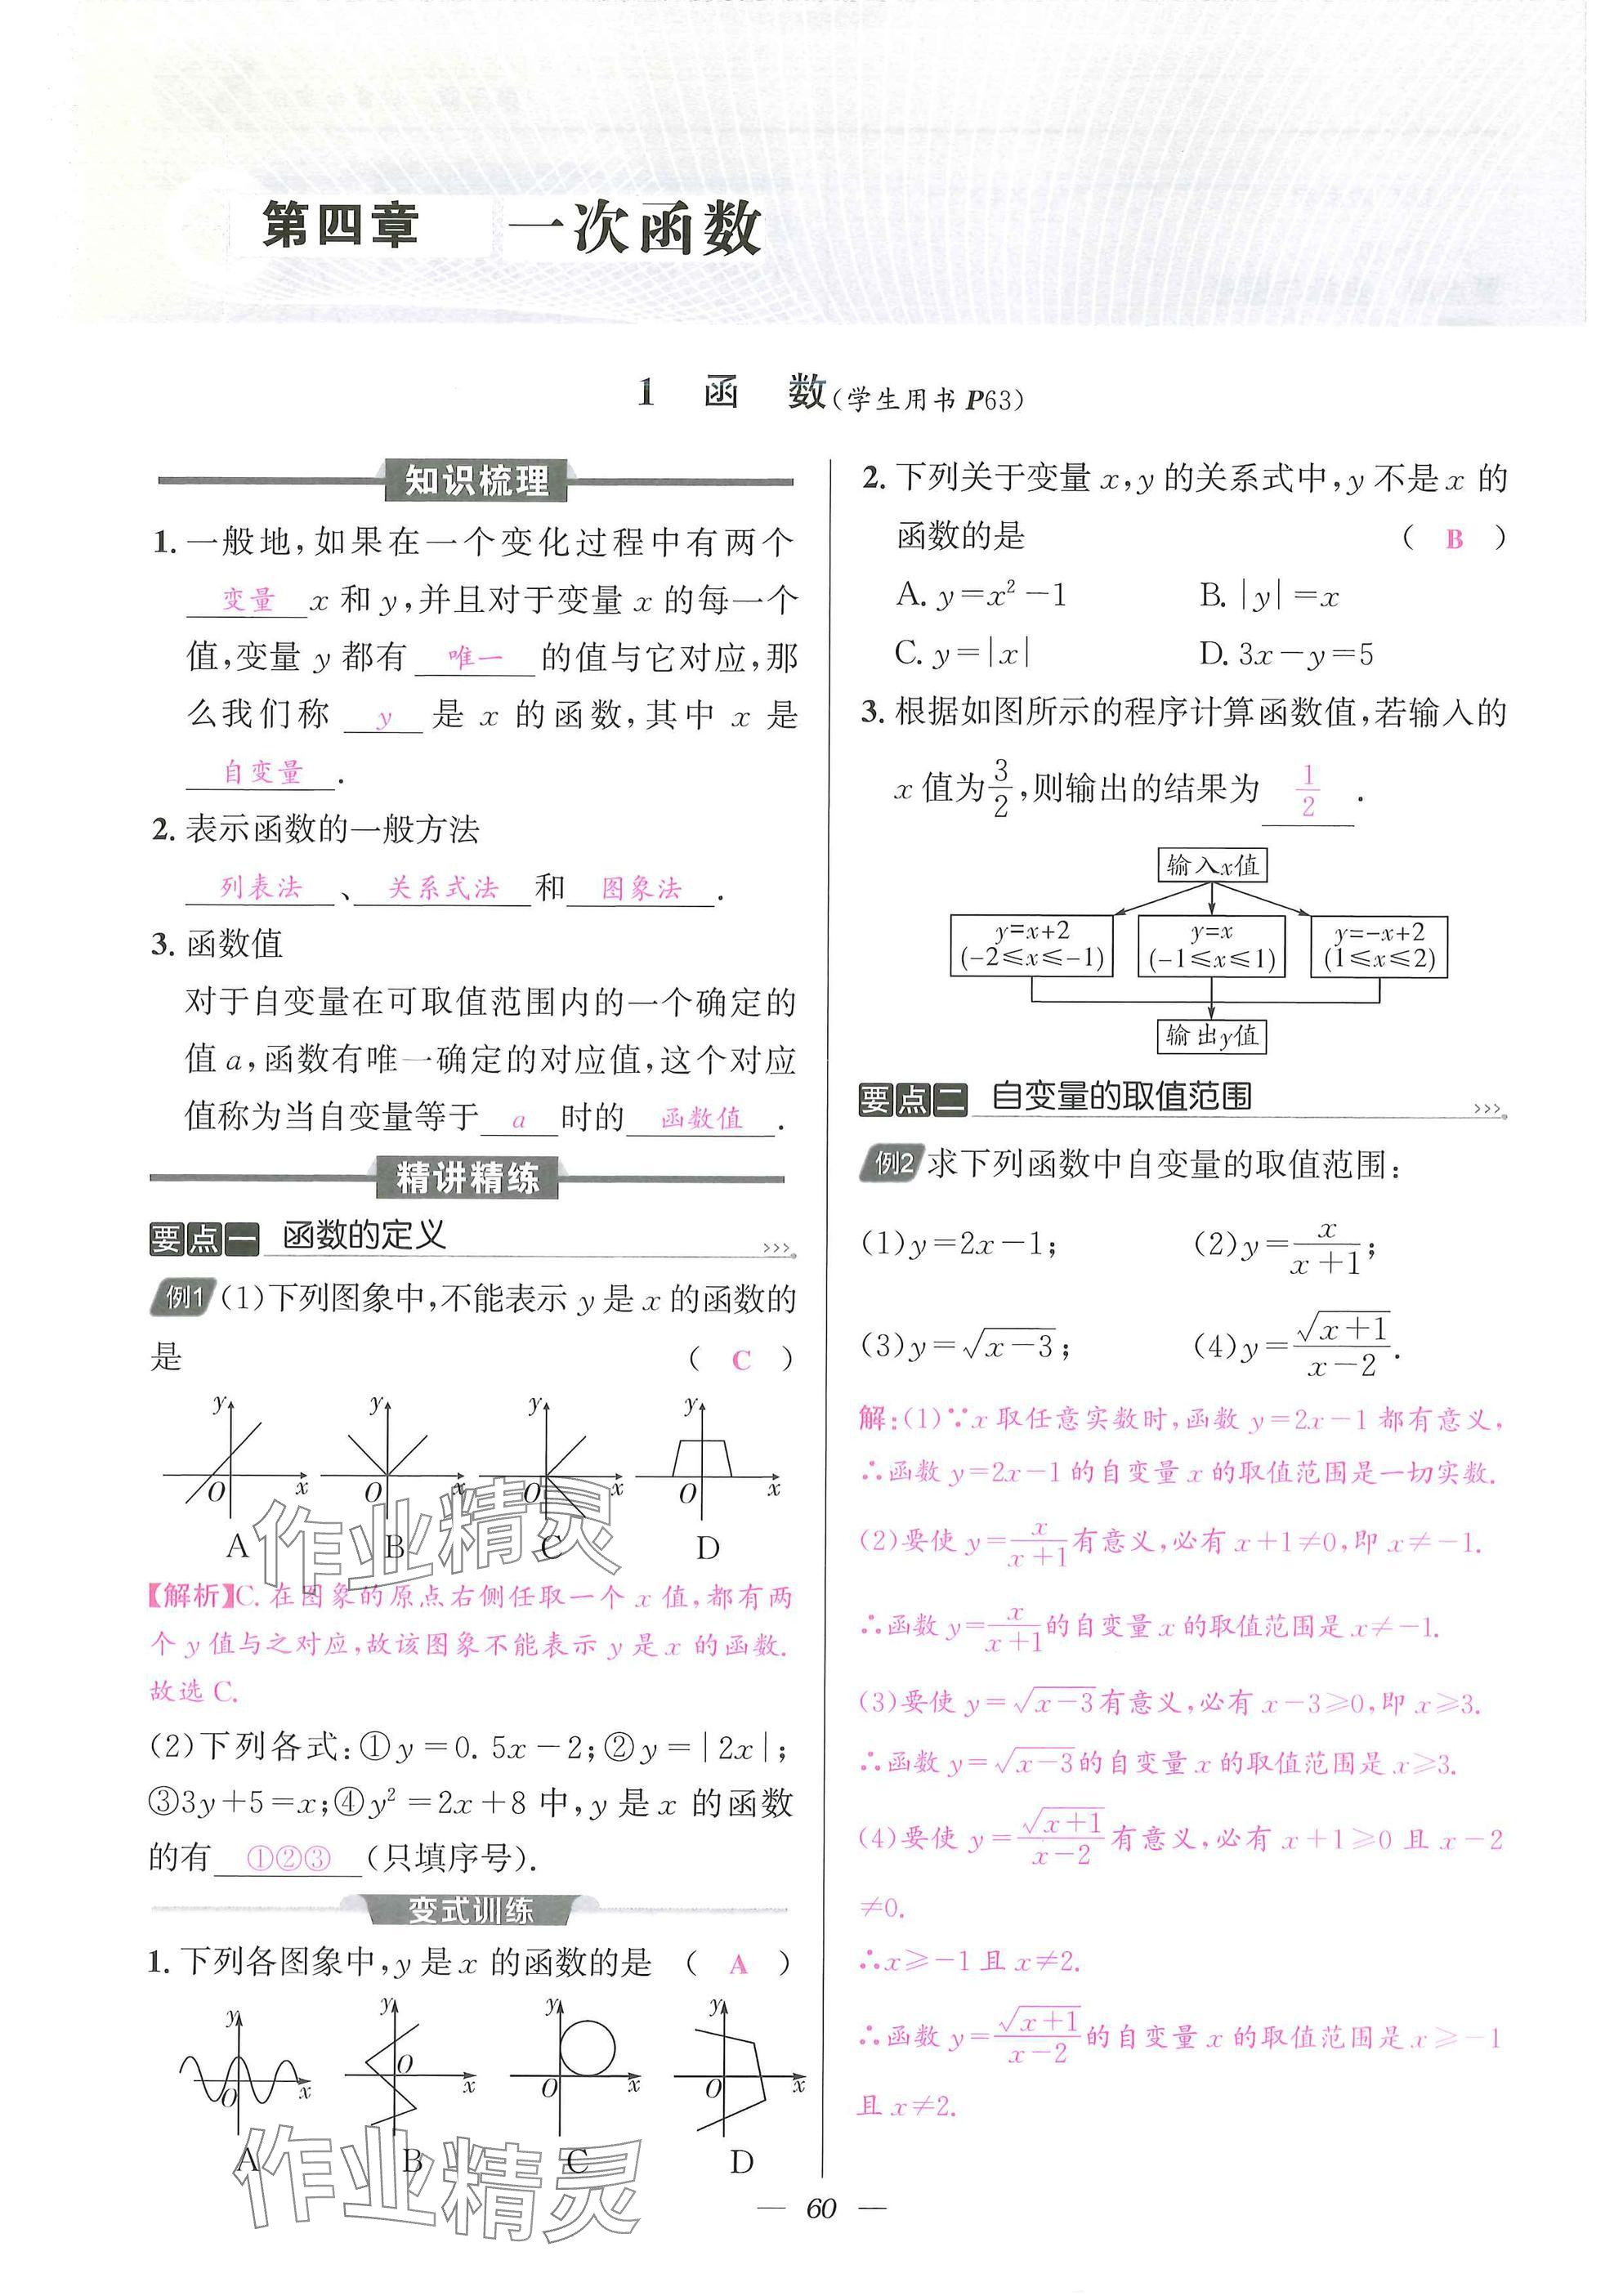 第四章 一次函数
1 函 数(学生用书P63)
知识梳理
1. 一般地,如果在一个变化过程中有两个
变量 x 和 y,并且对于变量 x 的每一个
值,变量 y 都有 唯一 的值与它对应,那
么我们称 y 是 x 的函数,其中 x 是
自变量 .
2. 表示函数的一般方法
列表法 、 关系式法 和 图象法 .
3. 函数值
对于自变量在可取值范围内的一个确定的
值 a,函数有唯一确定的对应值,这个对应
值称为当自变量等于 a 时的 函数值 .
精讲精练
要点一 函数的定义 >>>
例1 (1)下列图象中,不能表示 y 是 x 的函数的
是 ( C )
y y y y
O x O x O x O x
A B C D
【解析】C. 在图象的原点右侧任取一个 x 值,都有两
个 y 值与之对应,故该图象不能表示 y 是 x 的函数.
故选 C.
(2)下列各式:①y=0.5x-2;②y=|2x|;
③3y+5=x;④y²=2x+8 中,y 是 x 的函数
的有 ①②③ (只填序号).
变式训练
1. 下列各图象中,y 是 x 的函数的是 ( A )
y y y y
O x O x O x O x
A B C D
2. 下列关于变量 x,y 的关系式中,y 不是 x 的
函数的是 ( B )
A. y=x²-1 B. |y|=x
C. y=|x| D. 3x-y=5
3. 根据如图所示的程序计算函数值,若输入的
x 值为3/2,则输出的结果为 1/2 .
输入x值
y=x+2 y=x y=-x+2
(-2≤x≤-1) (-1≤x≤1) (1≤x≤2)
输出y值
要点二 自变量的取值范围 >>>
例2 求下列函数中自变量的取值范围:
(1)y=2x-1; (2)y=x/(x+1);
(3)y=√(x-3); (4)y=√(x+1)/(x-2).
解:(1)∵x 取任意实数时,函数 y=2x-1 都有意义,
∴函数 y=2x-1 的自变量 x 的取值范围是一切实数.
(2)要使 y=x/(x+1)有意义,必有 x+1≠0,即 x≠-1.
∴函数 y=x/(x+1)的自变量 x 的取值范围是 x≠-1.
(3)要使 y=√(x-3)有意义,必有 x-3≥0,即 x≥3.
∴函数 y=√(x-3)的自变量 x 的取值范围是 x≥3.
(4)要使 y=√(x+1)/(x-2)有意义,必有 x+1≥0 且 x-2
≠0.
∴x≥-1 且 x≠2.
∴函数 y=√(x+1)/(x-2)的自变量 x 的取值范围是 x≥-1
且 x≠2.
作业精灵
作业精灵
— 60 —